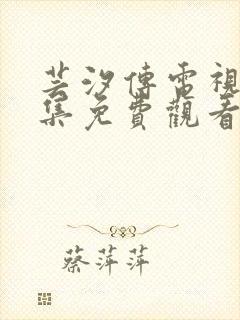 芸汐傳電視
集免費觀看
蔡萍萍